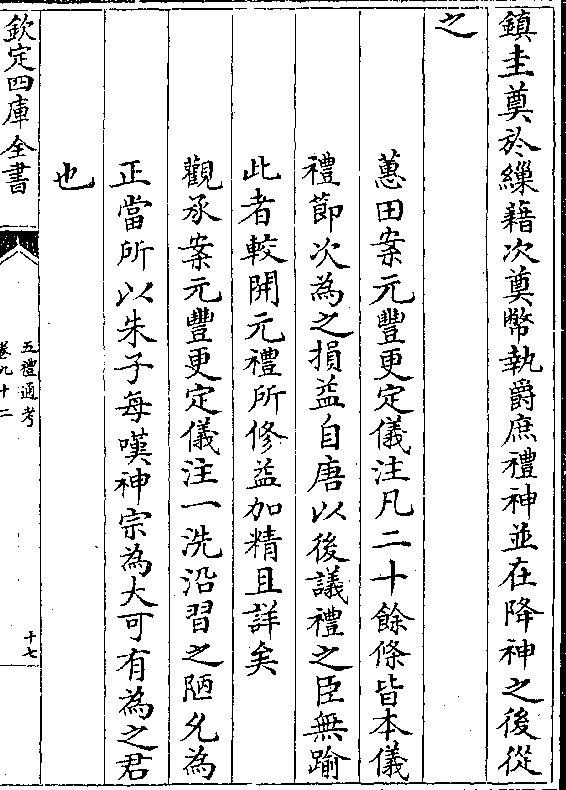 鎮圭奠於繅藉次奠幣執爵庶禮神並在降神之後從
之
蕙田案元豐更定儀注凡二十餘條皆本儀
禮節次為之損益自唐以後議禮之臣無踰
此者較開元禮所修益加精且詳矣
觀承案元豐更定儀注一洗沿習之陋允為
正當所以朱子每嘆神宗為大可有為之君
也
欽定四庫全書
五禮通考
卷九十二
十七